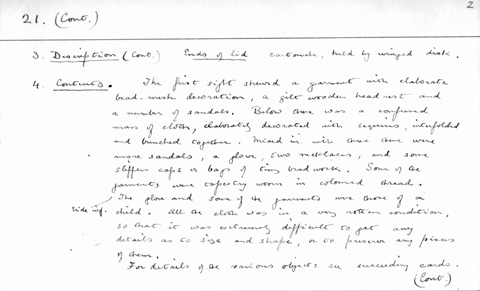 2
21. (Cont.)
3. Description (Cont.) Ends of lid cartouche, held by winged disk.
4. Contents. The first sight shewed a garment with elaborate
bead-mesh decorations, a gilt wooden head rest and
a number of sandals. Below these was a confused
mass of cloths, elaborately decorated with sequins, interfolded
and bunched together. Mixed in with these there were
more sandals, a glove, two necklaces, and some
slippers caps or bags of tiny bead work. Some of the
garments were tapestry woven in coloured thread.
The glove and some of the garments were those of a
child. All the cloth was in a very rotten condition,
so that it was extremely difficult to get any
details as to size and shape, or to preserve any pieces
of them.
For details of the various objects see succeeding cards.
(Cont.)